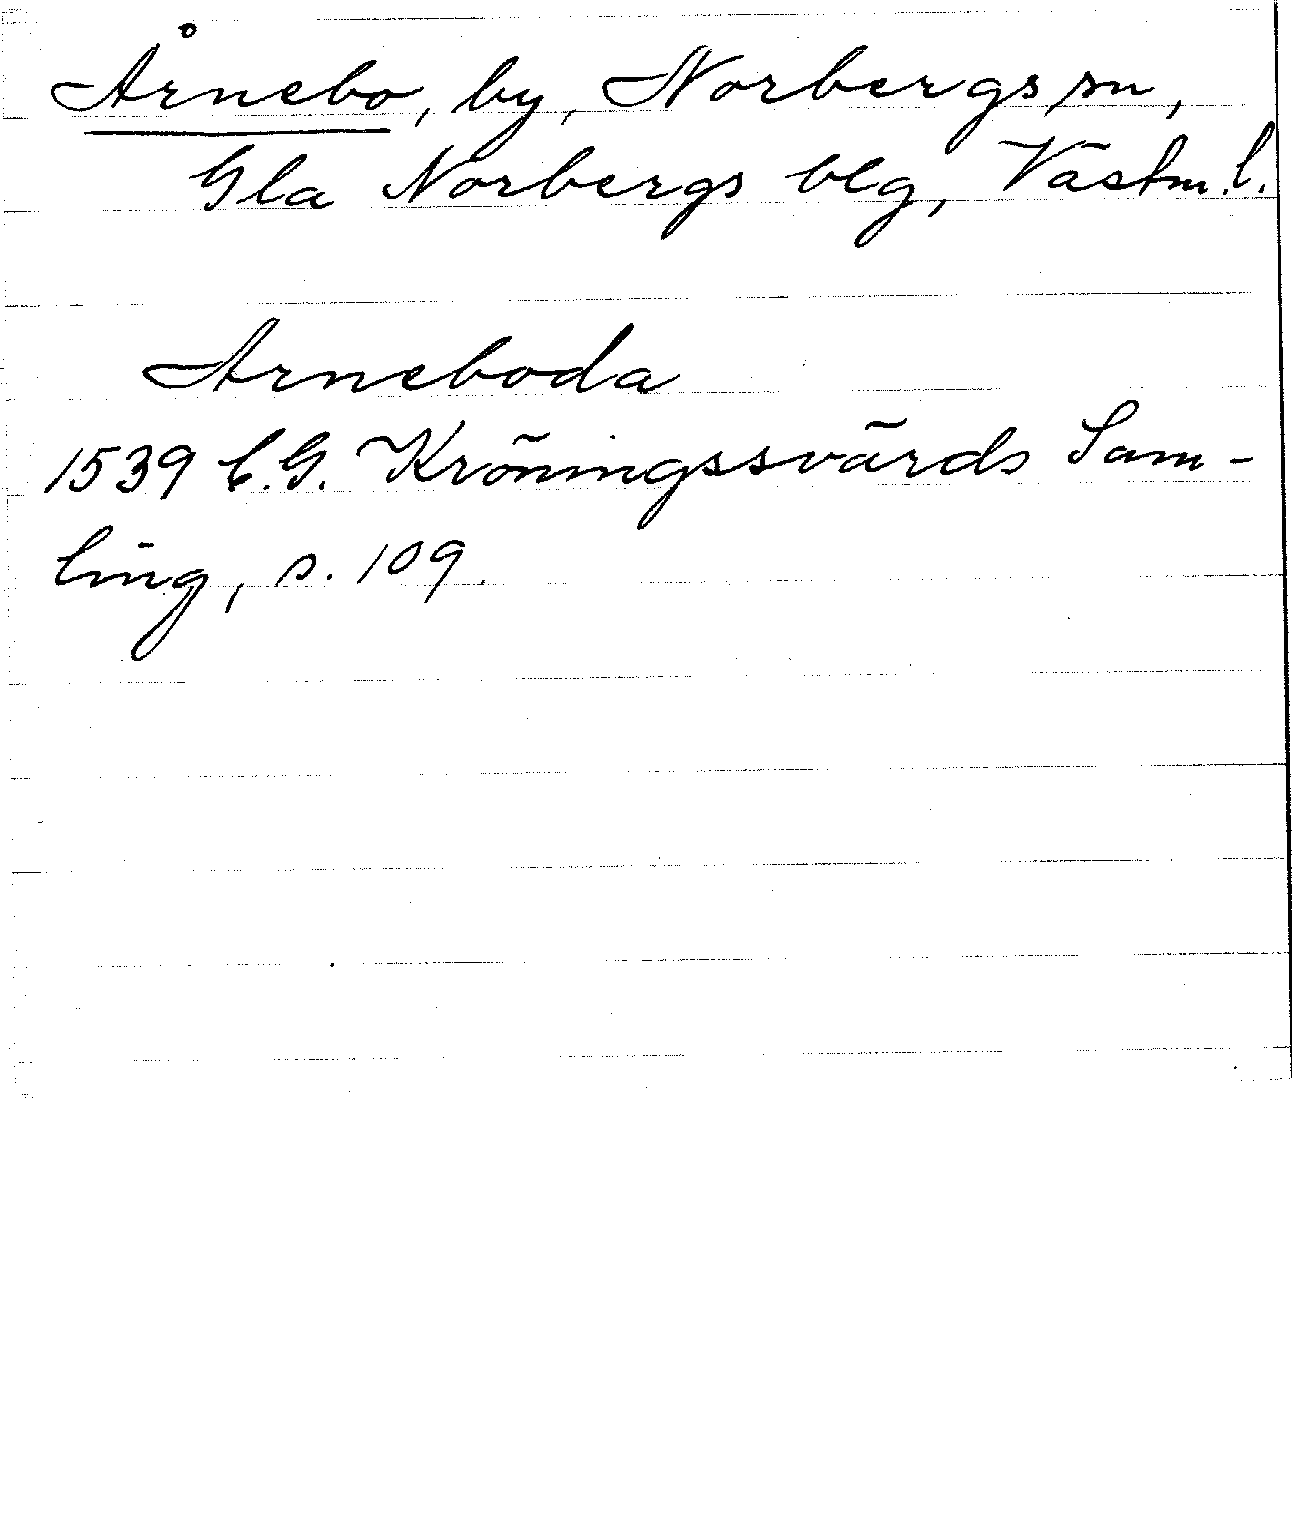 Årnebo, by, Norbergs sn,
Gla Norbergs blg, Västm. l.
Arneboda
1539 C.G. Kröningssvärds Sam-
ling, s. 109.